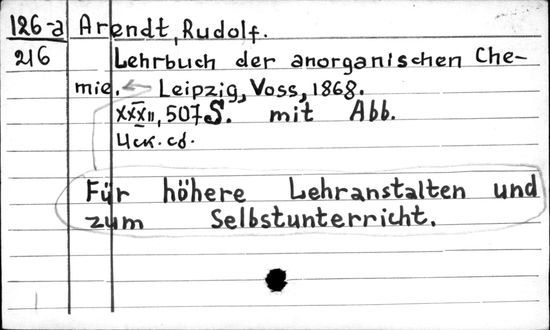 126-a Arendt, Rudolf.
216 Lehrbuch der anorganischen Che-
mie. Leipzig, Voss, 1868.
XXXII, 507 S. mit Abb.
Иск. сд.
Für höhere Lehranstalten und
zum Selbstunterricht.